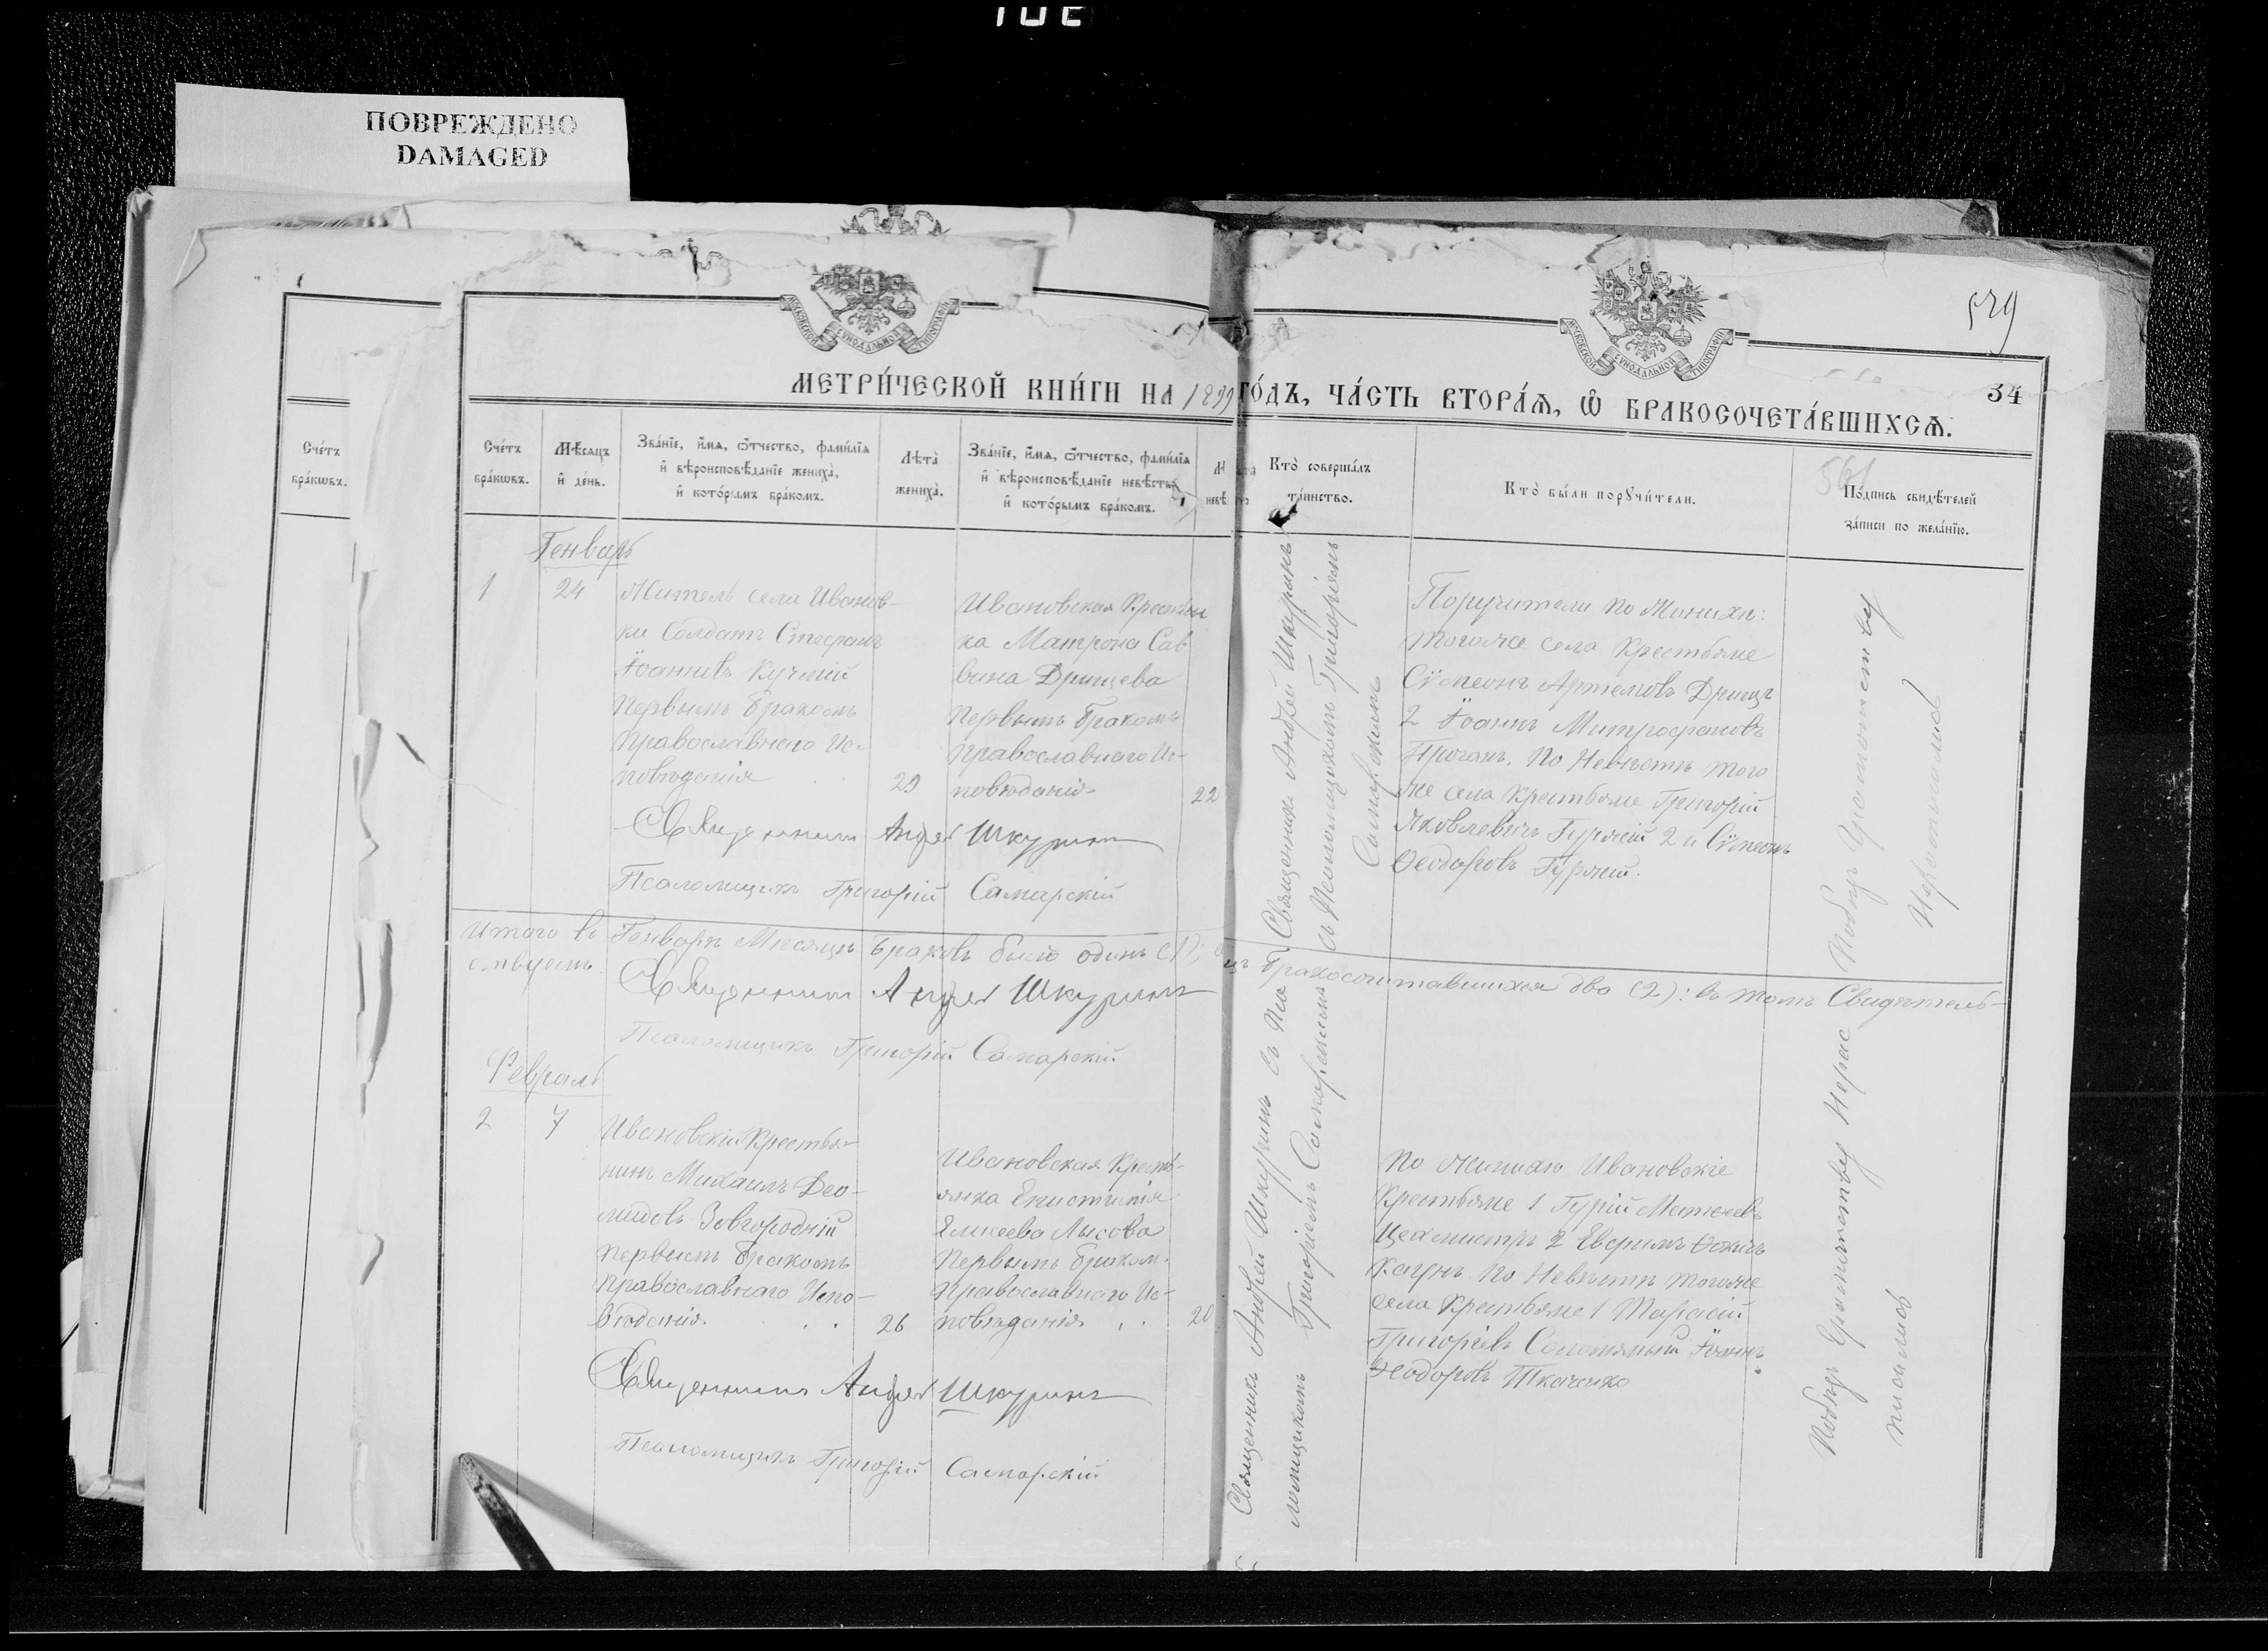 ПОВРЕЖДЕНО
DAMAGED
МОСКОВСКОЙ СУНОДАЛЬНОЙ ТИПОГРАФІИ
МОСКОВСКОЙ СУНОДАЛЬНОЙ ТИПОГРАФІИ
579
34
МЕТРИ́ЧЕСКОЙ КНИ́ГИ НА 1899 ГО́ДЪ, ЧА́СТЬ ВТОРА́Ѧ, Ѡ҆ БРАКОСОЧЕТА́ВШИХСѦ.
Сче́тъ
бра́кѡвъ.
Сче́тъ
бра́кѡвъ.
Мѣ́сѧцъ
и҆ де́нь.
Зва́нїе, и҆́мѧ, ѻ҆́тчество, фами́лїѧ
и҆ вѣроисповѣ́данїе жениха̀,
и҆ кото́рымъ бра́комъ.
Лѣта̀
жениха̀.
Зва́нїе, и҆́мѧ, ѻ҆́тчество, фами́лїѧ
и҆ вѣроисповѣ́данїе невѣ́сты,
и҆ кото́рымъ бра́комъ.
Кто̀ соверша́лъ
та́инство.
Кто̀ бы́ли порꙋчи́тели.
По́дпись свидѣ́телей
за́писи по жела́нїю.
Генварь
1
24
Житель села Иванов-
ки Солдатъ Стефанъ
Іоанновъ Кучмій
Первымъ бракомъ
Православнаго Ис-
повѣданія
29
Ивановская Крестьян
ка Матрона Сав
вина Дрищева
Первымъ бракомъ
Православнаго Ис-
повѣданія
22
Священникъ Андрей Шкуринъ
съ Псаломщикомъ Григоріемъ
Самарскимъ
Поручители по Женихѣ:
тогоже села Крестьяне
Сѵмеонъ Артемовъ Дрищъ
2 Іоаннъ Митрофановъ
по Невѣстѣ того
же села Крестьяне Григорій
Яковлевичъ Гуржій 2 и Сѵмеонъ
Ѳеодоровъ Гуржій.
Священникъ Андрей Шкуринъ
Псаломщикъ Григорій Самарскій
Итого въ Генварѣ Мѣсяцѣ браковъ было одинъ (1);
бракосочитавшихся два (2): въ томъ Свидѣтель-
ствуемъ
Священникъ Андрей Шкуринъ
Псаломщикъ Григорій Самарскій
Февраль
2
7
Ивановскій Крестья-
нинъ Михаилъ Дио-
мидовъ Завгородній
Первымъ бракомъ
Православнаго Испо-
вѣданія.
26
Ивановская Кресть-
янка Епистимія
Елисеева Лысова
Первымъ браком.
Православнаго Ис-
повѣданія
20
Священникъ Андрей Шкуринъ съ Пса
ломщикомъ Григоріемъ Самарскимъ
По Женихѣ Ивановскіе
Крестьяне 1 Гурій Матѳеевъ
2 Евфимъ Ѳокинъ
Кагунъ По Невѣстѣ тогоже
села Крестьяне 1 Тарасій
Григоріевъ Іоаннъ
Ѳеодоровъ Ткаченко
Священникъ Андрей Шкуринъ
Псаломщикъ Григорій Самарскій